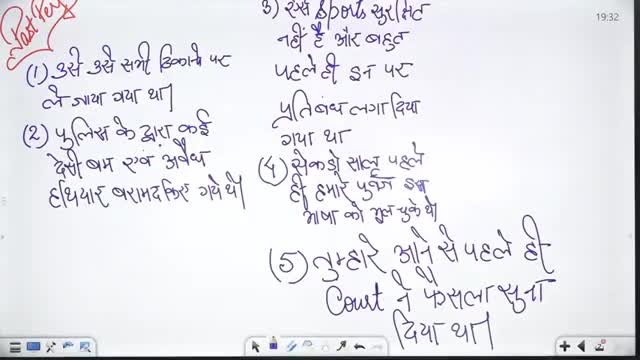 Past Per
(1) उसे उसे सभी ठिकाने पर
ले जाया गया था।
(2) पुलिस के द्वारा कई
देसी बम एवं अवैध
हथियार बरामद किए गये थे।
3) Sports सुरक्षित
नहीं है और बहुत
पहले ही इन पर
प्रतिबंध लगा दिया
गया था
(4) सेकड़ो साल पहले
ही हमारे पूर्वज इस
भाषा को भूल चुके थे।
(5) तुम्हारे आने से पहले ही
Court ने फैसला सुना
दिया था।
19:32